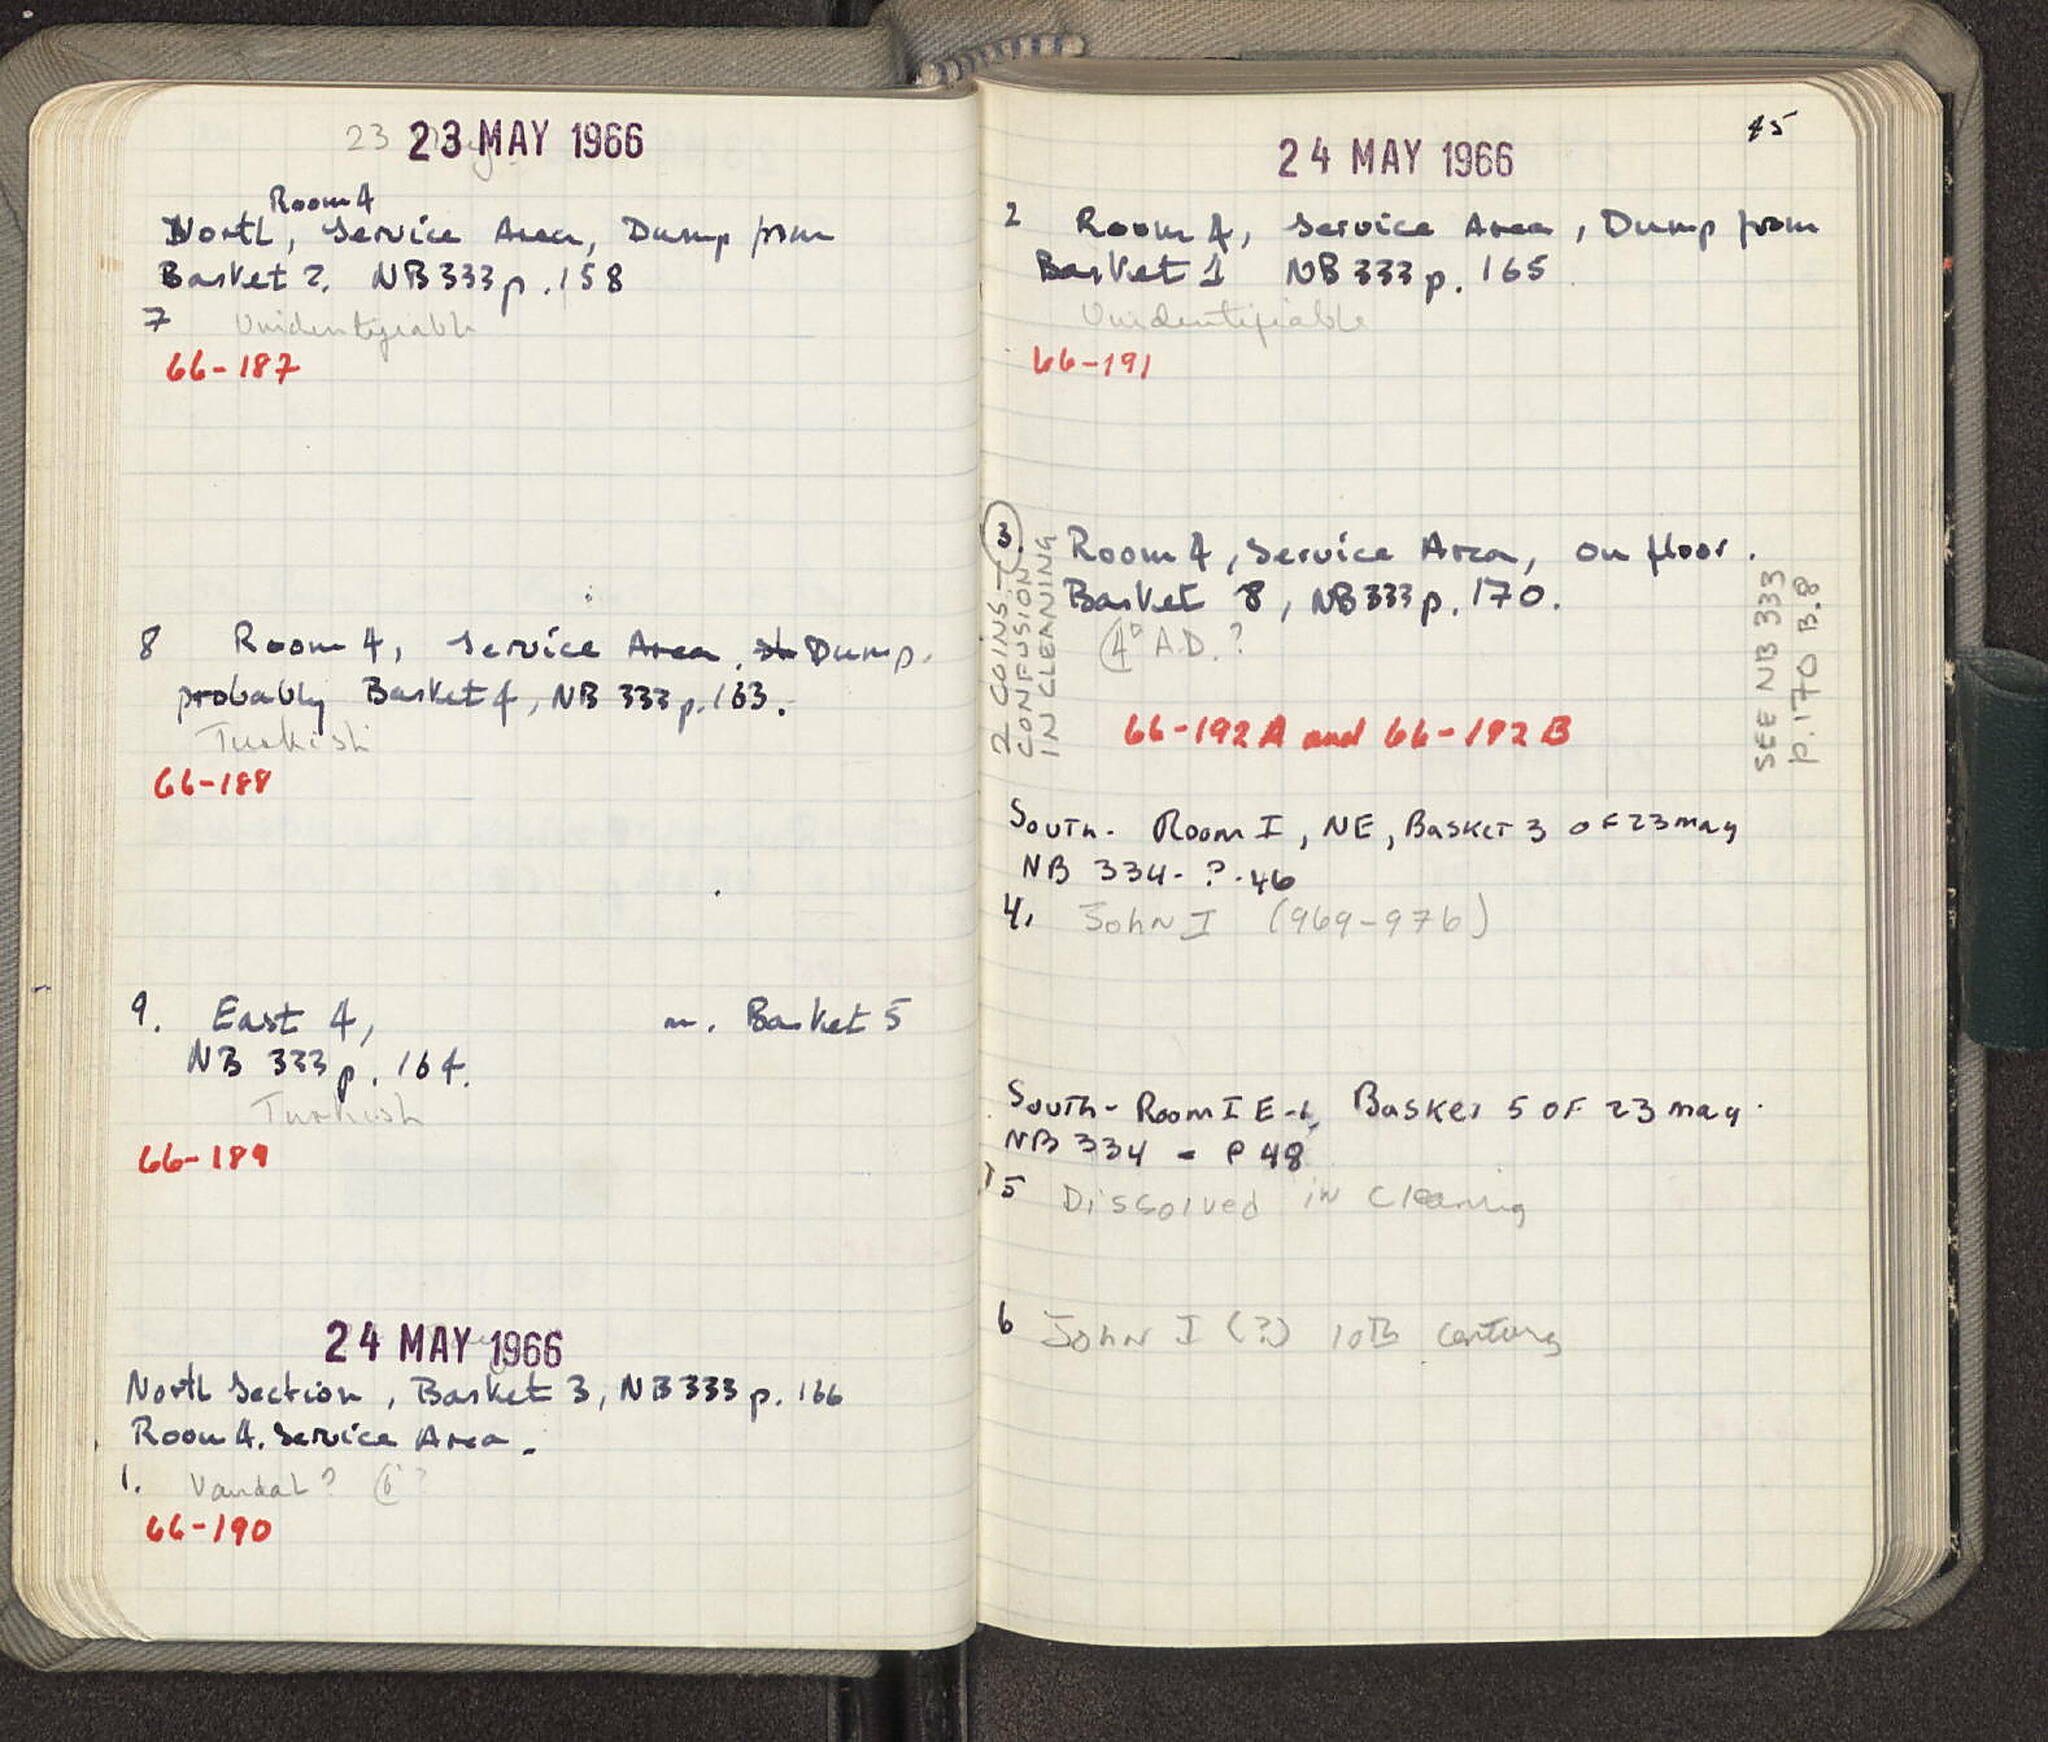 23 MAY 1966
Room 4
North, Service Area, Dump from
Basket 2. NB 333 p. 158
7 Unidentifiable
66-187
8 Room 4, Service Area. Dump.
probably Basket 4, NB 333 p. 163.
Turkish
66-188
9. East 4, Basket 5
NB 333 p. 164.
Turkish
66-189
24 MAY 1966
North Section, Basket 3, NB 333 p. 166
Room 4. Service Area.
1. Vandal? 6?
66-190
45
24 MAY 1966
2 Room 4, Service Area, Dump from
Basket 1 NB 333 p. 165
Unidentifiable
66-191
3 Room 4, Service Area, on floor.
Basket 8, NB 333 p. 170.
4° A.D.?
66-192A and 66-192B
2 COINS -
CONFUSION
IN CLEANING
SEE NB 333
p. 170 B.8
South - Room I, NE, Basket 3 of 23 may
NB 334 - ? - 46
4. John I (969-976)
South - Room I E-, Basket 5 OF 23 may
NB 334 - P 48
5 Dissolved in cleaning
6 John I (?) 10th century